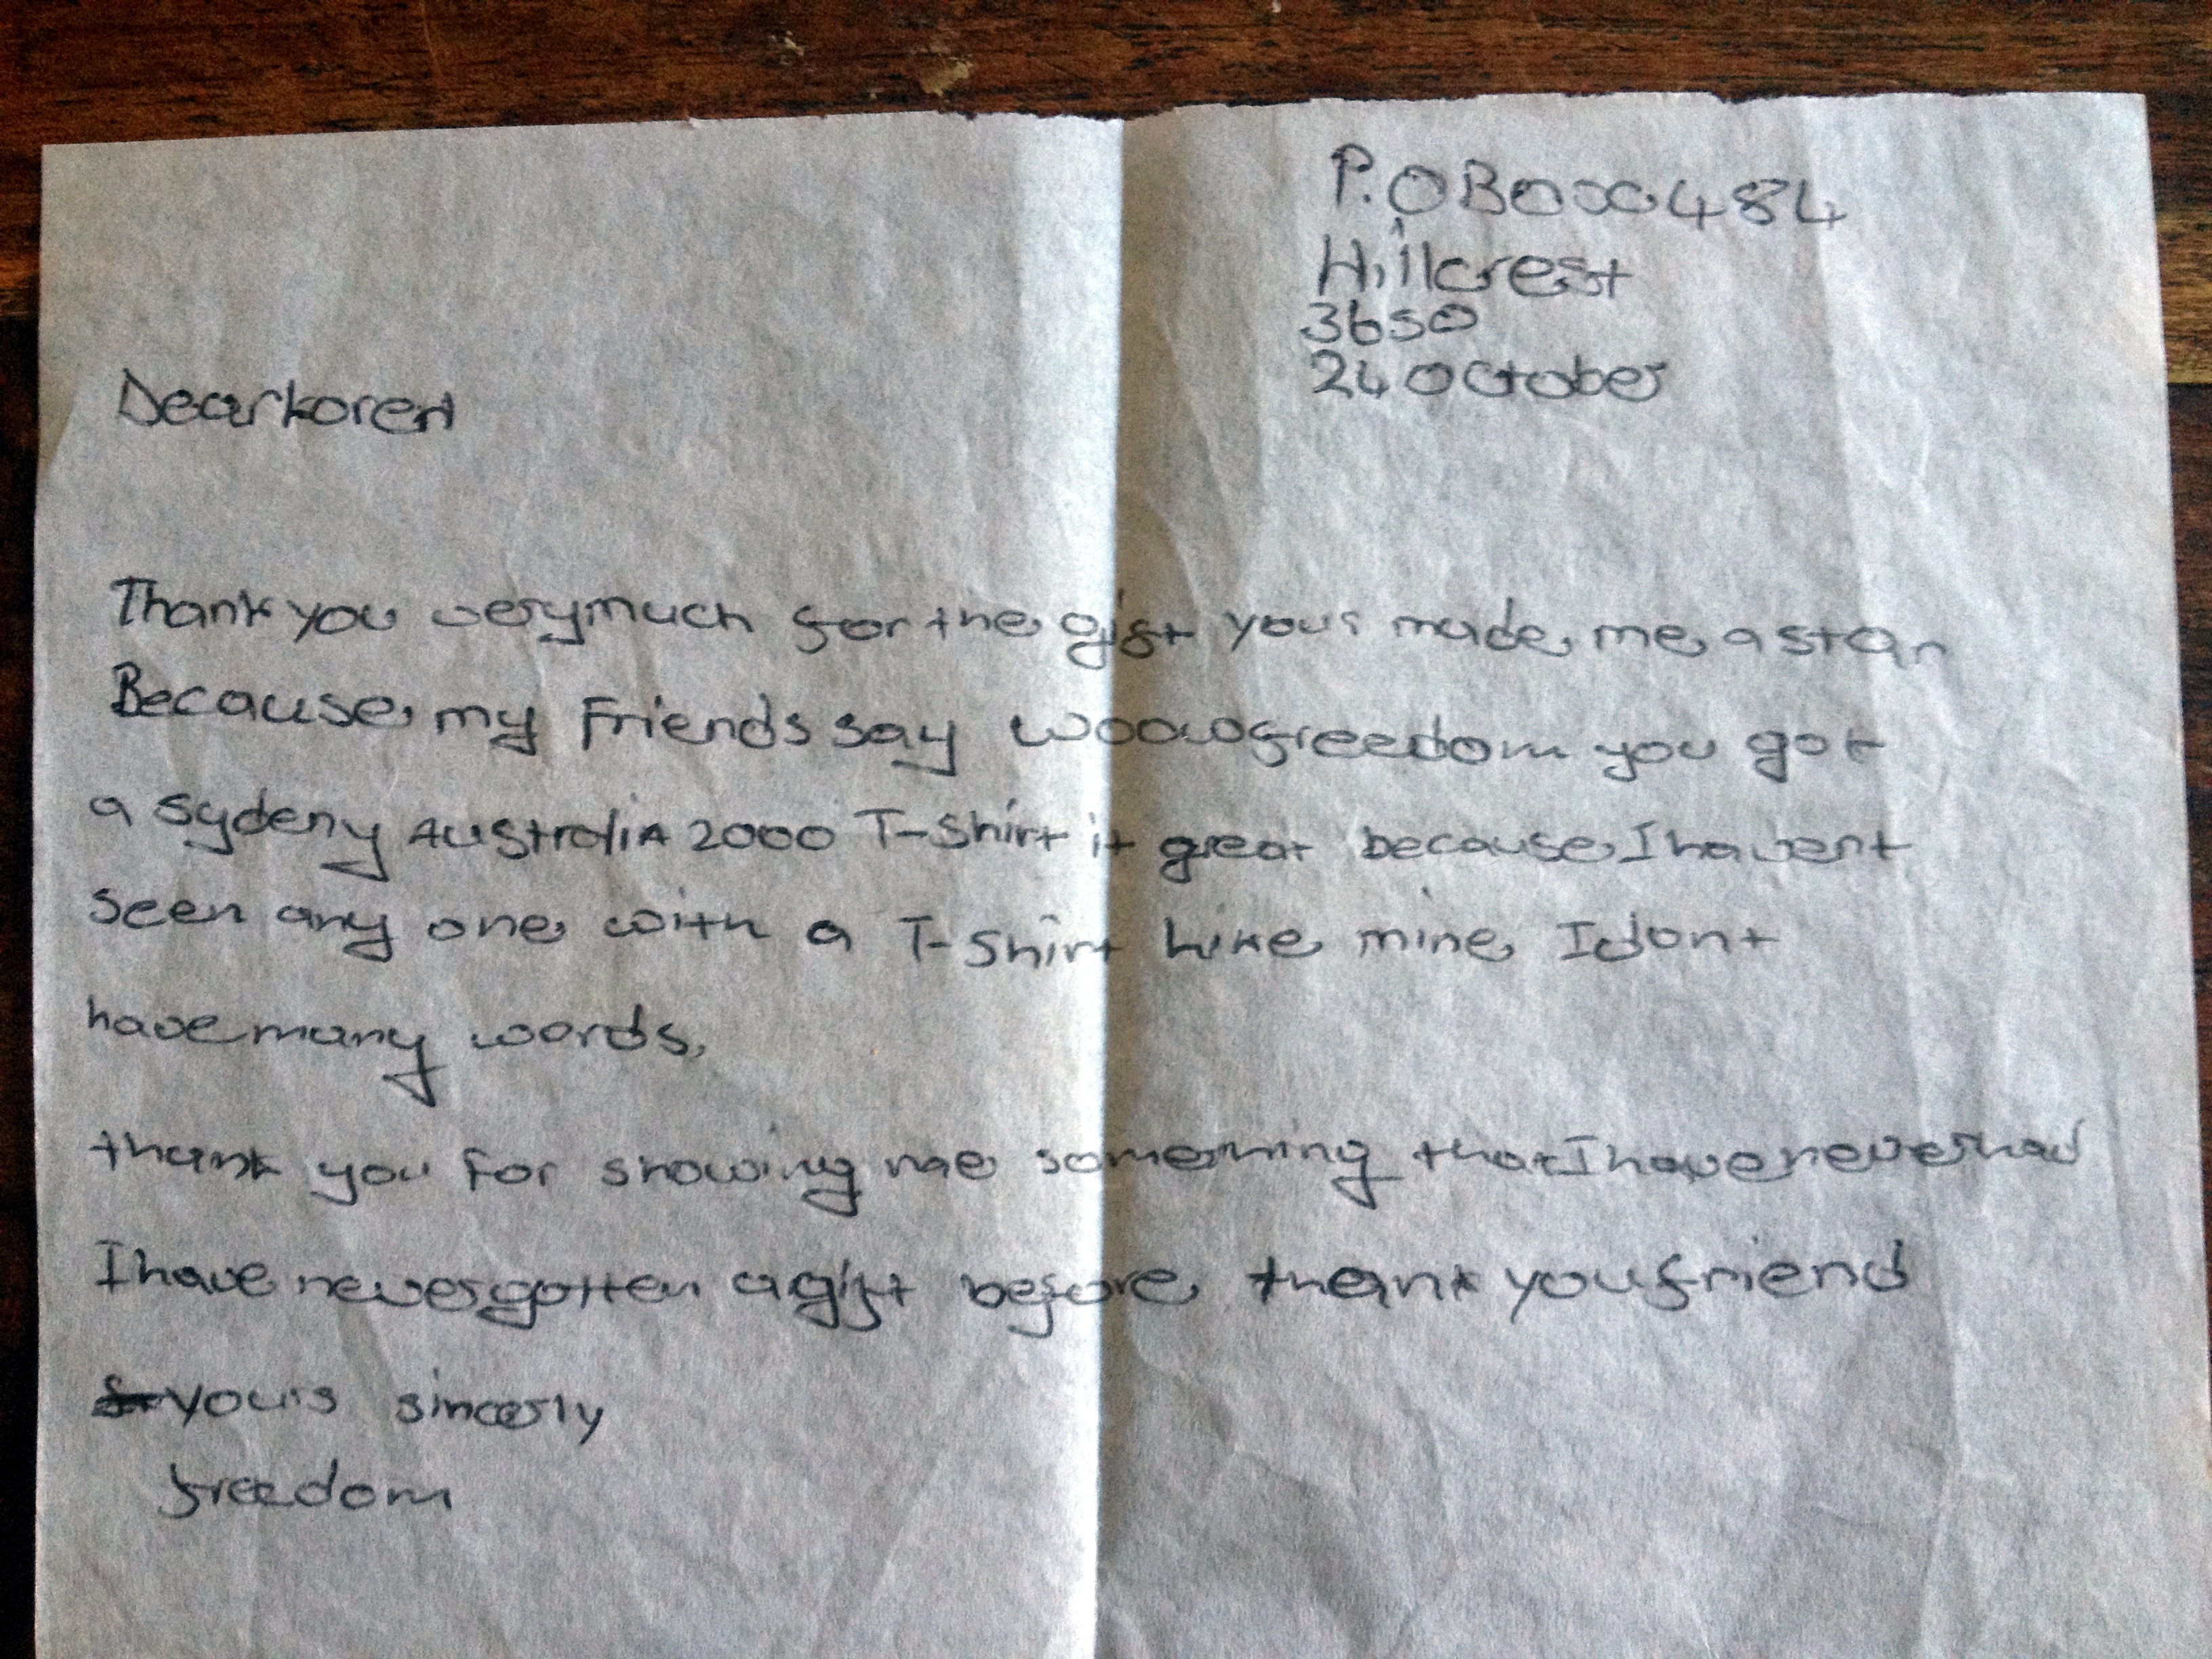 P.O Box 484
Hillcrest
3650
24 October
Dear koren
Thank you very much for the gift your made me a star
Because my Friends say woow freedom you got
a sydeny AUStraliA 2000 T-Shirt it great because I havent
seen any one with a T-Shirt Like mine I dont
have many words,
thank you for showing me something that I have never had
I have never gotten a gift before thank you friend
yours sincerly
freedom